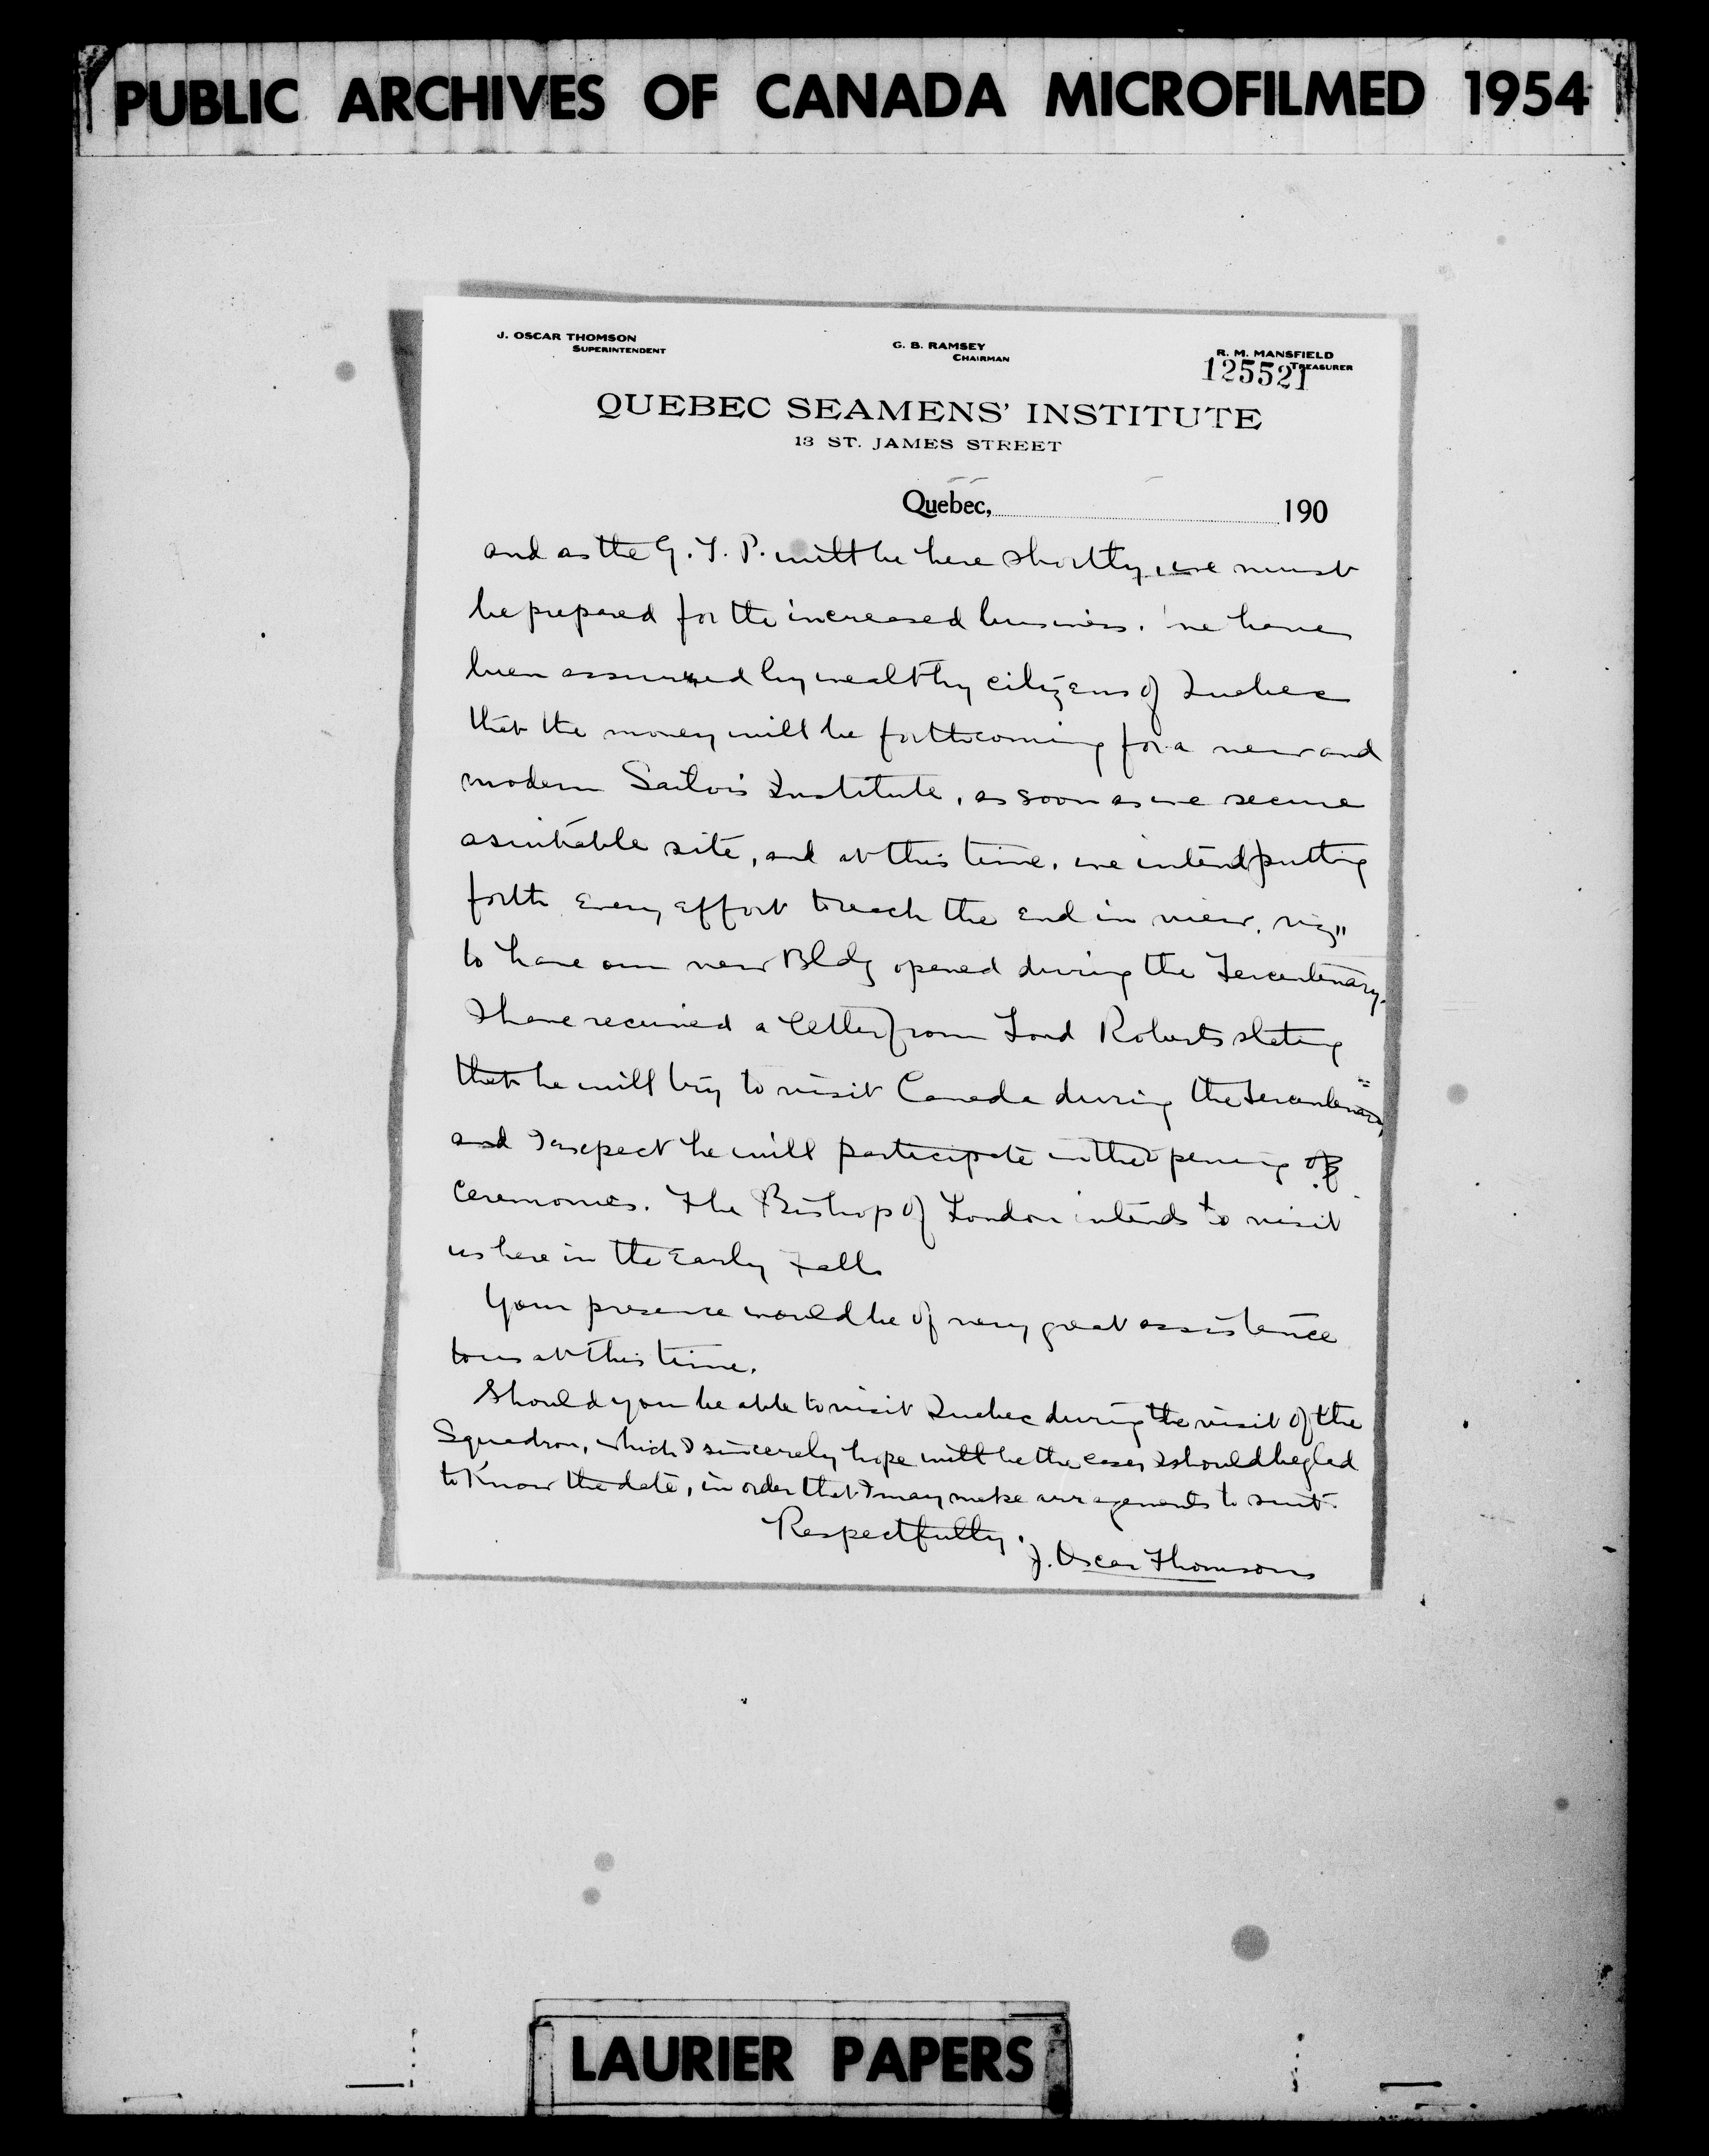 PUBLIC ARCHIVES OF CANADA MICROFILMED 1954
J. OSCAR THOMSON
SUPERINTENDENT
G. B. RAMSEY
CHAIRMAN
R. M. MANSFIELD
TREASURER
125521
QUEBEC SEAMENS' INSTITUTE
13 ST. JAMES STREET
Quebec, 190
and as the G. T. P. will be here shortly, we must
be prepared for the increased business. we have
been assured by wealthy citizens of Quebec
that the money will be forthcoming for a new and
modern Sailors Institute, as soon as we secure
a suitable site, and at this time, we intend putting
forth every effort to reach the end in view, viz"
to have our new Bldg opened during the Tercentenary.
I have received a letter from Lord Roberts stating
that he will try to visit Canada during the Tercentenary,
and I expect he will participate in the opening of
ceremonies. The Bishop of London intends to visit
us here in the Early Fall.
Your presence would be of very great assistance
to us at this time.
Should you be able to visit Quebec during the visit of the
Squadron, which I sincerely hope will be the case, I should be glad
to Know the date, in order that I may make arragements to suit.
Respectfully,
J. Oscar Thomson
LAURIER PAPERS